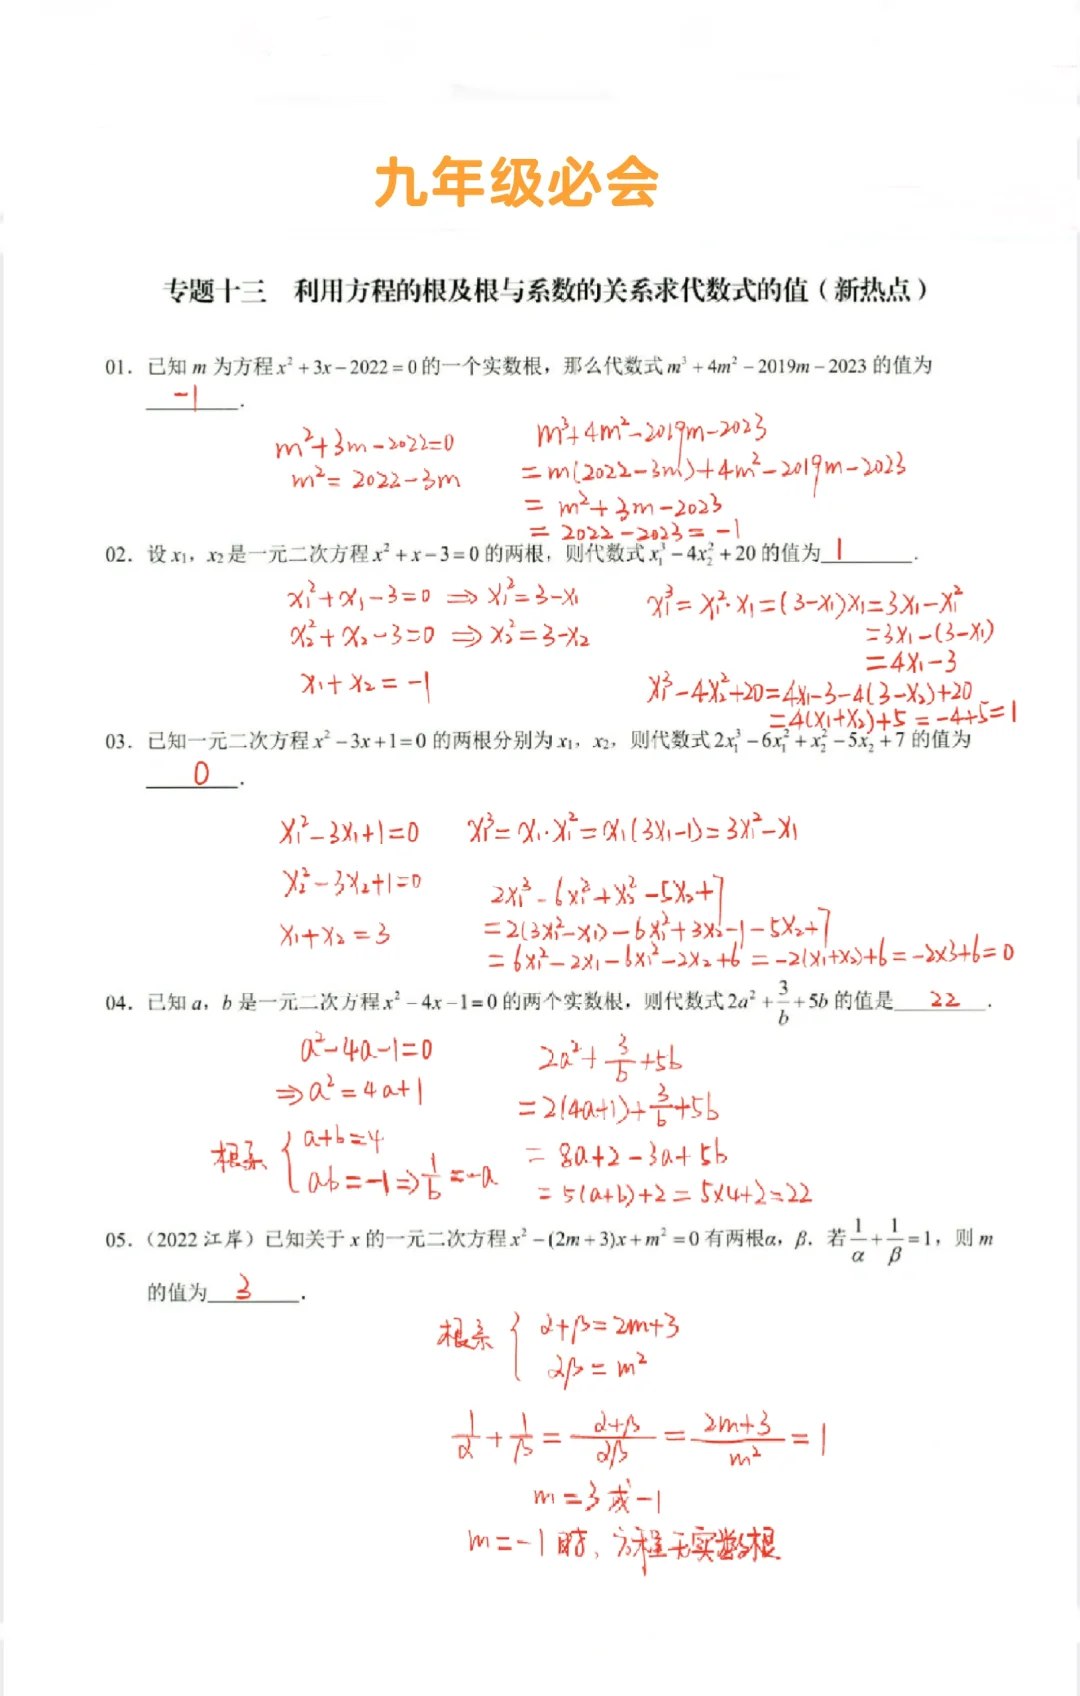 九年级必会
专题十三 利用方程的根及根与系数的关系求代数式的值（新热点）
01. 已知 m 为方程x²+3x-2022=0的一个实数根，那么代数式m³+4m²-2019m-2023的值为
-1.
m²+3m-2022=0 m³+4m²-2019m-2023
m²=2022-3m =m(2022-3m)+4m²-2019m-2023
=m²+3m-2023
=2022-2023=-1
02. 设x₁，x₂是一元二次方程x²+x-3=0的两根，则代数式x₁³-4x₂²+20的值为 1.
x₁²+x₁-3=0⇒x₁²=3-x₁ x₁³=x₁²·x₁=(3-x₁)x₁=3x₁-x₁²
x₂²+x₂-3=0⇒x₂²=3-x₂ =3x₁-(3-x₁)
=4x₁-3
x₁+x₂=-1 x₁³-4x₂²+20=4x₁-3-4(3-x₂)+20
=4(x₁+x₂)+5=-4+5=1
03. 已知一元二次方程x²-3x+1=0的两根分别为x₁，x₂，则代数式2x₁³-6x₁²+x₂²-5x₂+7的值为
0.
x₁²-3x₁+1=0 x₁³=x₁·x₁²=x₁(3x₁-1)=3x₁²-x₁
x₂²-3x₂+1=0 2x₁³-6x₁²+x₂²-5x₂+7
x₁+x₂=3 =2(3x₁²-x₁)-6x₁²+3x₂-1-5x₂+7
=6x₁²-2x₁-6x₁²-2x₂+6=-2(x₁+x₂)+6=-2×3+6=0
04. 已知a，b是一元二次方程x²-4x-1=0的两个实数根，则代数式2a²+3/b+5b的值是 22.
a²-4a-1=0 2a²+3/b+5b
⇒a²=4a+1 =2(4a+1)+3/b+5b
根系{a+b=4 =8a+2-3a+5b
ab=-1⇒1/b=-a =5(a+b)+2=5×4+2=22
05.（2022江岸）已知关于x的一元二次方程x²-(2m+3)x+m²=0有两根α，β．若1/α+1/β=1，则m
的值为 3.
根系{α+β=2m+3
αβ=m²
1/α+1/β=α+β/αβ=2m+3/m²=1
m=3或-1
m=-1时，方程无实数根